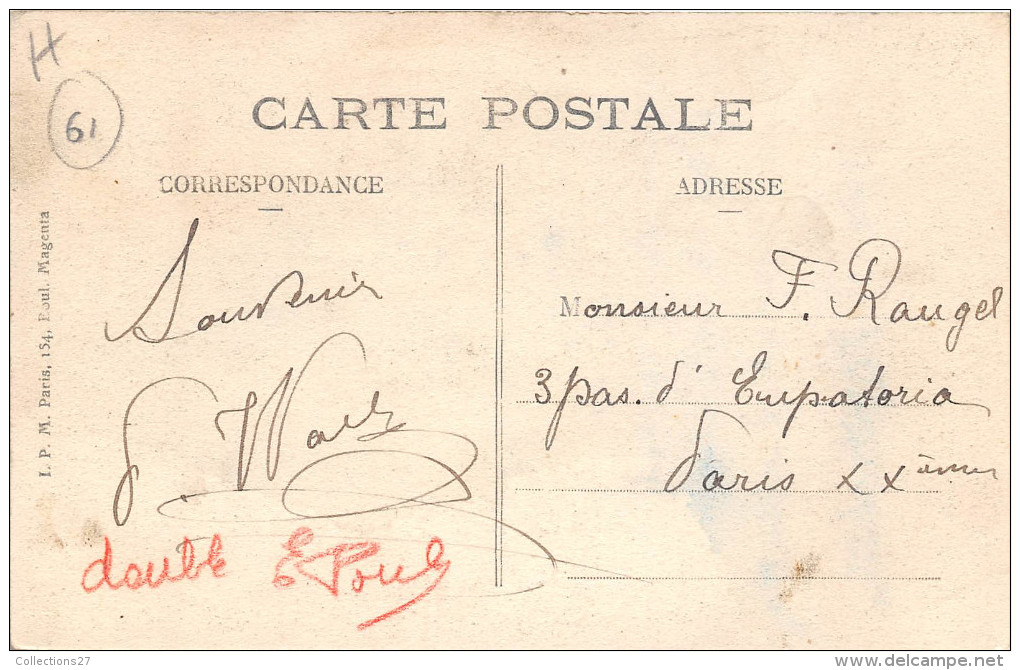 H
61
CARTE POSTALE
CORRESPONDANCE
ADRESSE
I. P. M. Paris, 154, Boul. Magenta
Souvenir
Monsieur F. Raugel
3 pas. d' Eupatoria
Paris XXème
double
Collections27
delcampe.net